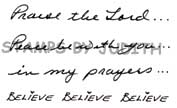 Praise the Lord...
STAMPS BY JUDITH
Peace be with you...
in my prayers...
BELIEVE BELIEVE BELIEVE